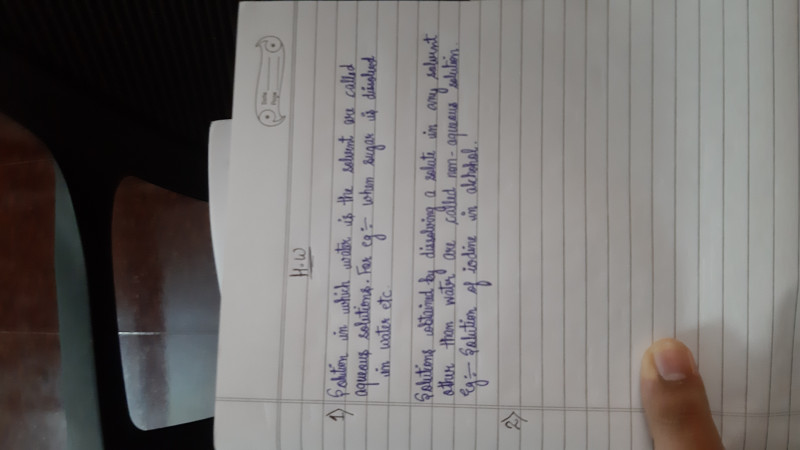 Date
Page
H.W
1) Solution in which water is the solvent are called
aqueous solutions. For eg:- when sugar is dissolved
in water etc.
Solutions obtained by dissolving a solute in any solvent
other them water are called non-aqueous solution.
Eg:- Solution of iodine in alchohol.
2)